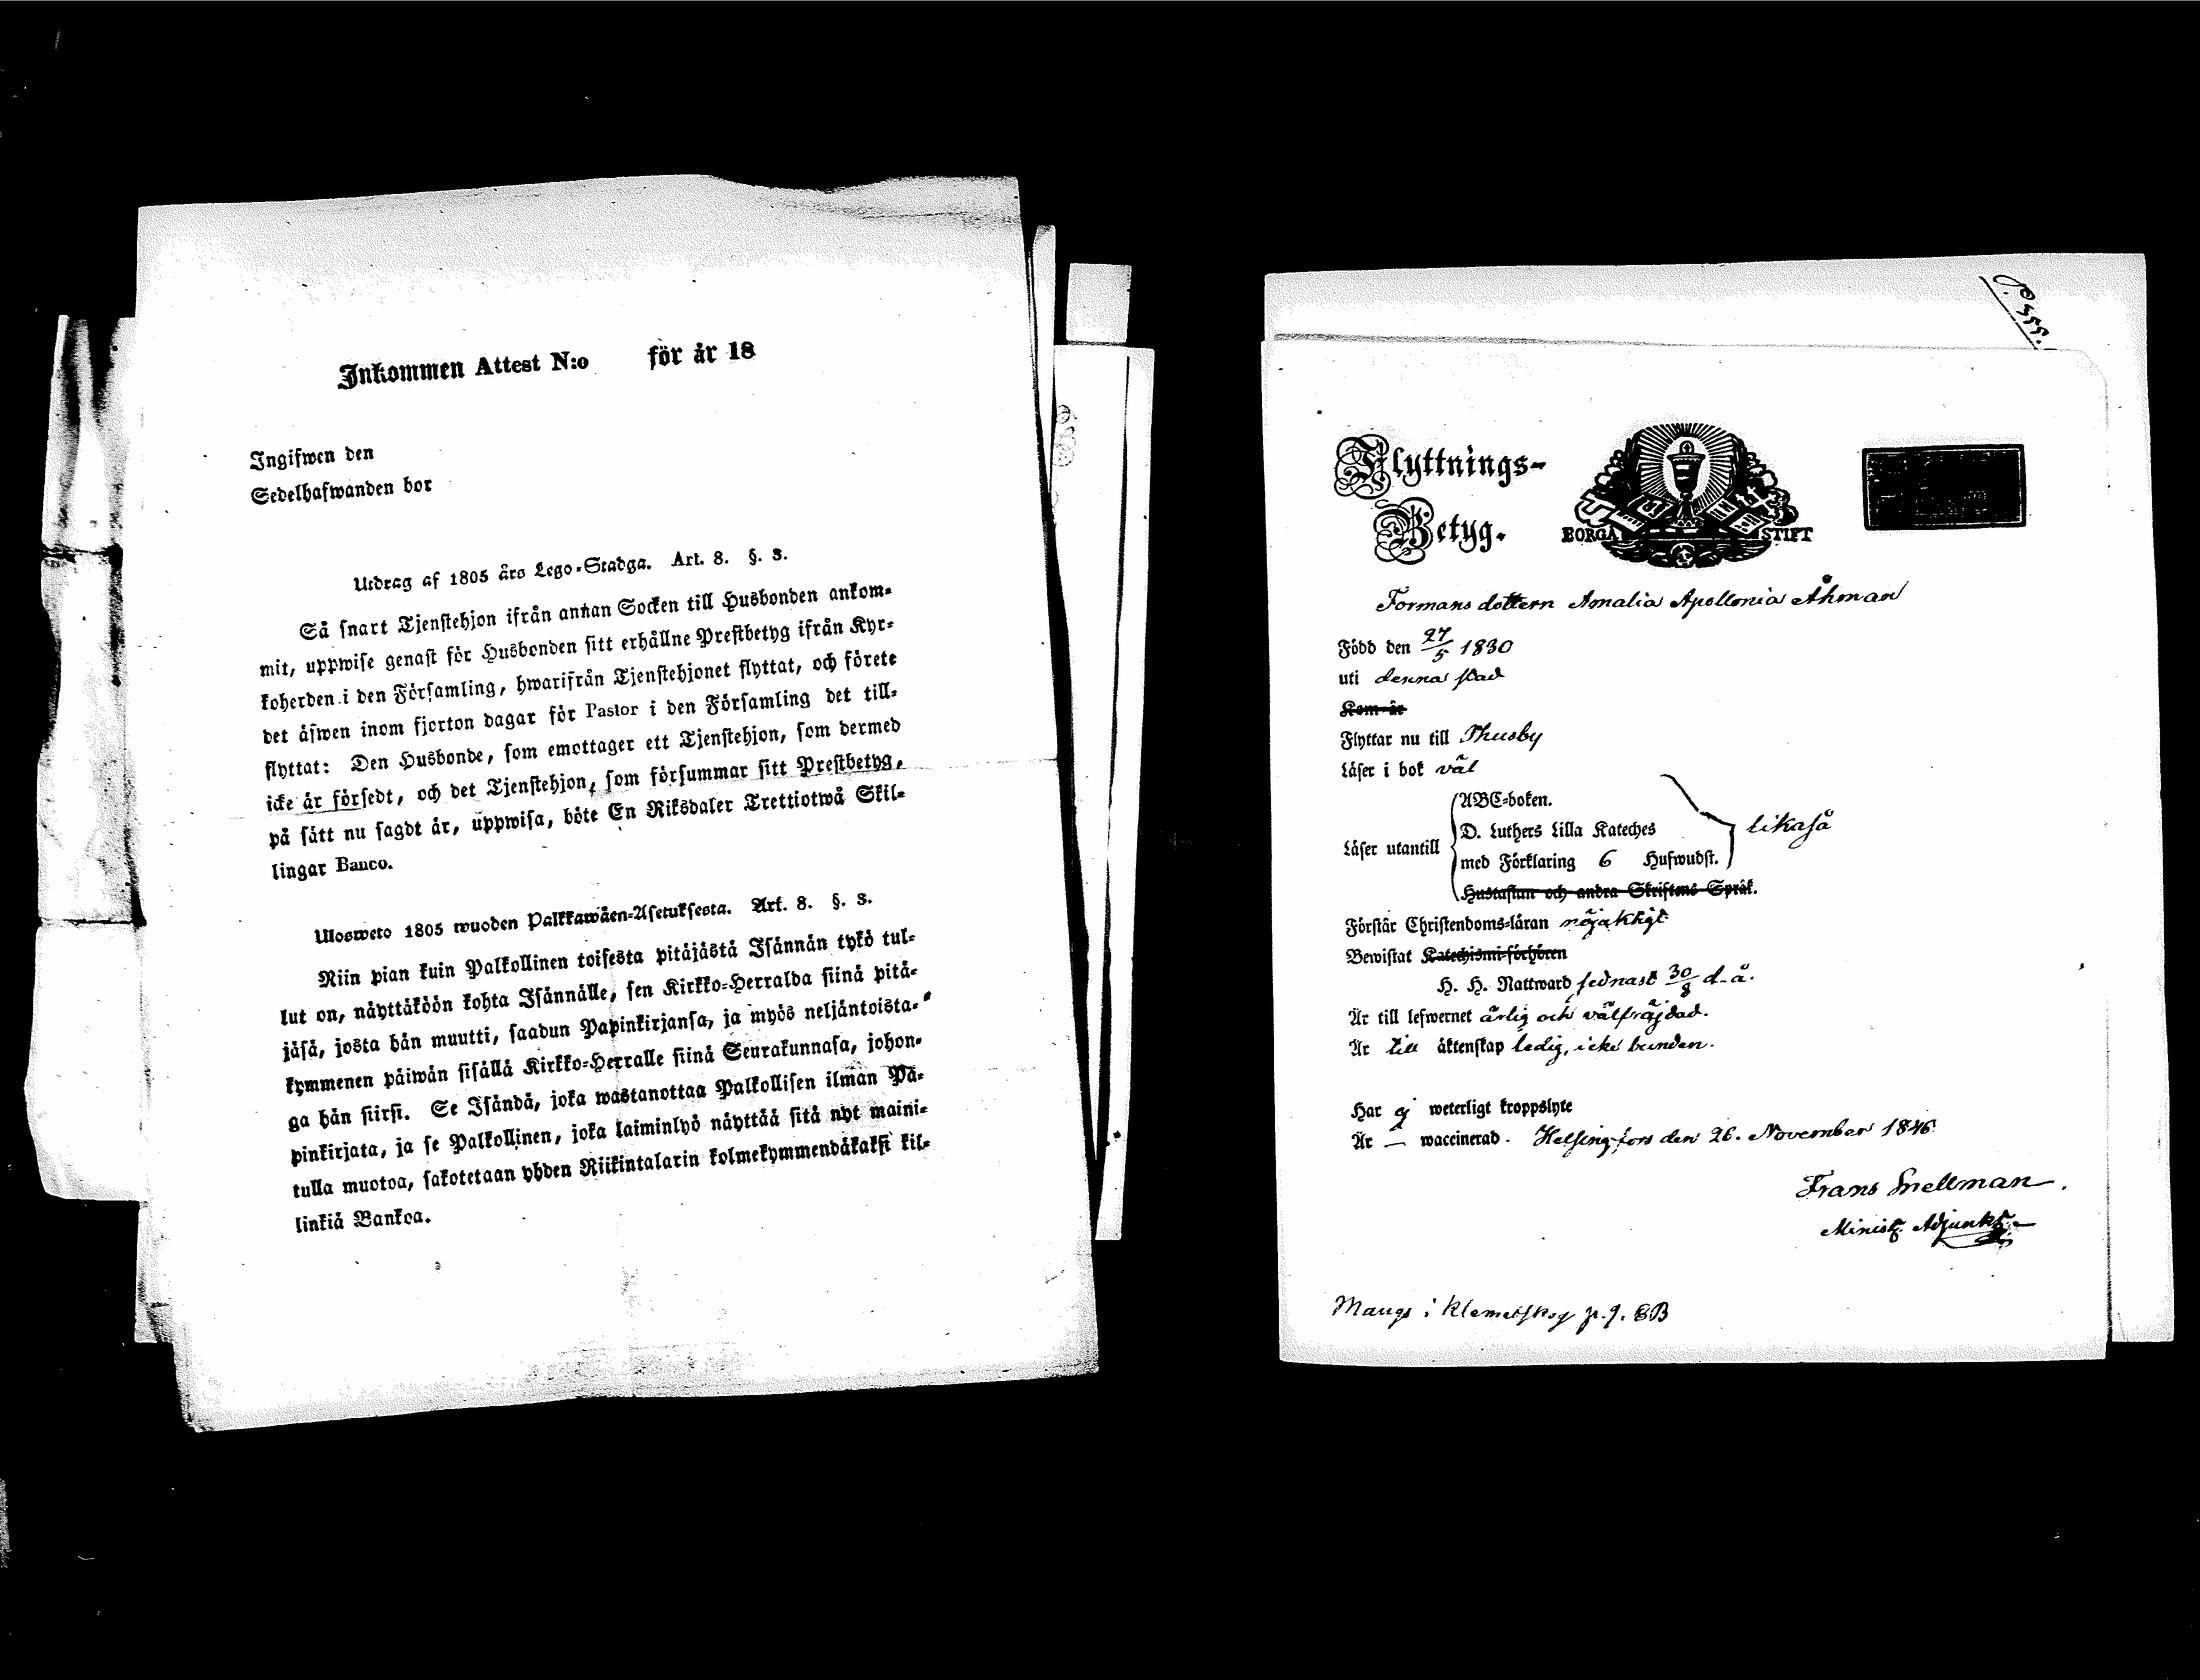 Inkommen Attest N:o för år 18
Ingifwen den
Sedelhafwanden bor
Utdrag af 1805 års Lego-Stadga. Art. 8. §. 3.
Så snart Tjenstehjon ifrån annan Socken till Husbonden ankom-
mit, uppwise genast för Husbonden sitt erhållne Prestbetyg ifrån Kyr-
koherden i den Församling, hwarifrån Tjenstehjonet flyttat, och förete
det äfwen inom fjorton dagar för Pastor i den Församling det till-
flyttat: Den Husbonde, som emottager ett Tjenstehjon, som dermed
icke är försedt, och det Tjenstehjon, som försummar sitt Prestbetyg,
på sätt nu sagdt är, uppwisa, böte En Riksdaler Trettiotwå Skil-
lingar Banco.
Ulosweto 1805 wuoden Palkkawäen-Asetuksesta. Art. 8. §. 3.
Niin pian kuin Palkollinen toisesta pitäjästä Isännän tykö tul-
lut on, näyttäköön kohta Isännälle, sen Kirkko-Herralda siinä pitä-
jäsä, josta hän muutti, saadun Papinkirjansa, ja myös neljäntoista-
kymmenen päiwän sisällä Kirkko-Herralle siinä Seurakunnasa, johon-
ga hän siirsi. Se Isändä, joka wastanottaa Palkollisen ilman Pa-
pinkirjata, ja se Palkollinen, joka laiminlyö näyttää sitä nyt maini-
tulla muotoa, sakotetaan yhden Riikintalarin kolmekymmendäkaksi kil-
linkiä Bankoa.
p. 555.
Flyttnings-
Betyg.
BORGÅ STIFT
Formans dottern Amalia Apollonia Åhman
Född den 27/5 1830
uti denna stad
Kom år
Flyttar nu till Thusby
Läser i bok väl
Läser utantill
ABC-boken.
D. Luthers Lilla Kateches
med Förklaring 6 Hufwudst.
likaså
Hustaflan och andra Skriftens Språk.
Förstår Christendoms-läran nöjaktigt
Bewistat Katechismi-förhören
H. H. Nattward sednast 30/8 d. å.
Är till lefwernet ärlig och välfräjdad.
Är till äktenskap ledig, icke bunden.
Har ej weterligt kroppslyte
Är — waccinerad. Helsingfors den 26. November 1846
Frans Snellman.
Minist. Adjunkt.
Maugs i Klemetskog p.g. BB